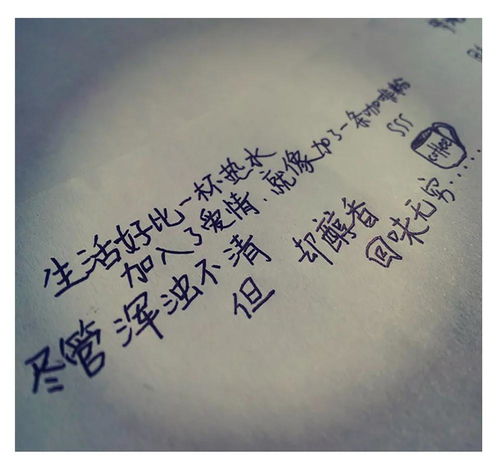 生活好比一杯热水
加入了爱情，就像加了一条咖啡粉
尽管浑浊不清
但却醇香
回味无穷……
SSS
coffee